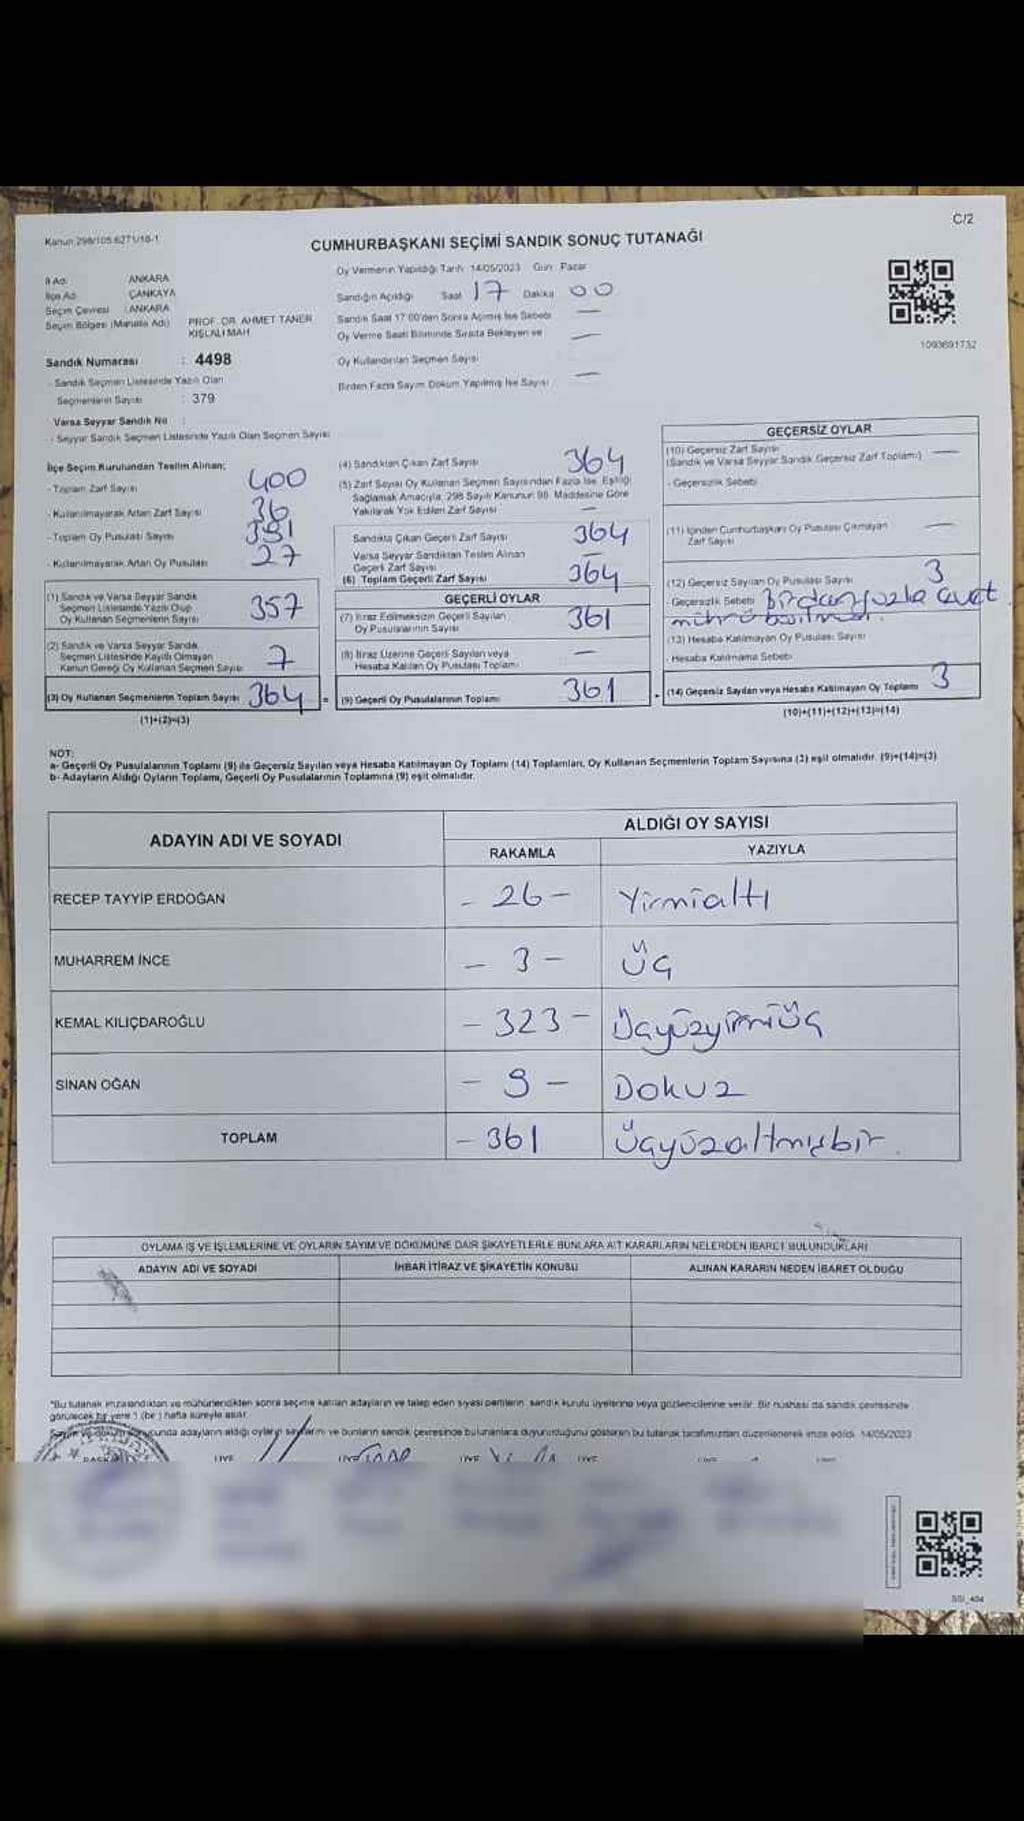 C/2
Kanun 298/105.6271/18-1
CUMHURBAŞKANI SEÇİMİ SANDIK SONUÇ TUTANAĞI
İl Adı ANKARA
İlçe Adı ÇANKAYA
Seçim Çevresi : ANKARA
Seçim Bölgesi (Mahalle Adı) PROF. DR. AHMET TANER
KIŞLALI MAH.
Sandık Numarası : 4498
- Sandık Seçmen Listesinde Yazılı Olan
Seçmenlerin Sayısı : 379
Varsa Seyyar Sandık No :
- Seyyar Sandık Seçmen Listesinde Yazılı Olan Seçmen Sayısı
Oy Vermenin Yapıldığı Tarih 14/05/2023 Gün Pazar
Sandığın Açıldığı Saat 17 Dakika 00
Sandık Saat 17:00'den Sonra Açılmış İse Sebebi —
Oy Verme Saati Bitiminde Sırada Bekleyen ve —
Oy Kullandırılan Seçmen Sayısı
Birden Fazla Sayım Döküm Yapılmış İse Sayısı —
1093691732
İlçe Seçim Kurulundan Teslim Alınan;
- Toplam Zarf Sayısı 400
- Kullanılmayarak Artan Zarf Sayısı 36
- Toplam Oy Pusulası Sayısı 391
- Kullanılmayarak Artan Oy Pusulası 27
(1) Sandık ve Varsa Seyyar Sandık
Seçmen Listesinde Yazılı Olup
Oy Kullanan Seçmenlerin Sayısı 357
(2) Sandık ve Varsa Seyyar Sandık
Seçmen Listesinde Kayıtlı Olmayan
Kanun Gereği Oy Kullanan Seçmen Sayısı 7
(3) Oy Kullanan Seçmenlerin Toplam Sayısı 364 =
(1)+(2)=(3)
(4) Sandıktan Çıkan Zarf Sayısı 364
(5) Zarf Sayısı Oy Kullanan Seçmen Sayısından Fazla İse, Eşitliği
Sağlamak Amacıyla, 298 Sayılı Kanunun 98. Maddesine Göre
Yakılarak Yok Edilen Zarf Sayısı —
Sandıkta Çıkan Geçerli Zarf Sayısı 364
Varsa Seyyar Sandıktan Teslim Alınan
Geçerli Zarf Sayısı —
(6) Toplam Geçerli Zarf Sayısı 364
GEÇERLİ OYLAR
(7) İtiraz Edilmeksizin Geçerli Sayılan
Oy Pusulalarının Sayısı 361
(8) İtiraz Üzerine Geçerli Sayılan veya
Hesaba Katılan Oy Pusulası Toplamı —
(9) Geçerli Oy Pusulalarının Toplamı 361
GEÇERSİZ OYLAR
(10) Geçersiz Zarf Sayısı —
(Sandık ve Varsa Seyyar Sandık Geçersiz Zarf Toplamı)
- Geçersizlik Sebebi
(11) İçinden Cumhurbaşkanı Oy Pusulası Çıkmayan
Zarf Sayısı —
(12) Geçersiz Sayılan Oy Pusulası Sayısı 3
- Geçersizlik Sebebi Birden fazla evet
mührü basılması.
(13) Hesaba Katılmayan Oy Pusulası Sayısı
- Hesaba Katılmama Sebebi
(14) Geçersiz Sayılan veya Hesaba Katılmayan Oy Toplamı 3
(10)+(11)+(12)+(13)=(14)
NOT:
a- Geçerli Oy Pusulalarının Toplamı (9) ile Geçersiz Sayılan veya Hesaba Katılmayan Oy Toplamı (14) Toplamları, Oy Kullanan Seçmenlerin Toplam Sayısına (3) eşit olmalıdır. (9)+(14)=(3)
b- Adayların Aldığı Oyların Toplamı, Geçerli Oy Pusulalarının Toplamına (9) eşit olmalıdır.
ADAYIN ADI VE SOYADI
ALDIĞI OY SAYISI
RAKAMLA YAZIYLA
RECEP TAYYİP ERDOĞAN - 26 - Yirmialtı
MUHARREM İNCE - 3 - Üç
KEMAL KILIÇDAROĞLU - 323 - Üçyüzyirmiüç
SİNAN OĞAN - 9 - Dokuz
TOPLAM - 361 Üçyüzaltmışbir.
OYLAMA İŞ VE İŞLEMLERİNE VE OYLARIN SAYIM VE DÖKÜMÜNE DAİR ŞİKAYETLERLE BUNLARA AİT KARARLARIN NELERDEN İBARET BULUNDUKLARI
ADAYIN ADI VE SOYADI İHBAR İTİRAZ VE ŞİKAYETİN KONUSU ALINAN KARARIN NEDEN İBARET OLDUĞU
*Bu tutanak imzalandıktan ve mühürlendikten sonra seçime katılan adayların ve talep eden siyasi partilerin sandık kurulu üyelerine veya gözlemcilerine verilir. Bir nüshası da sandık çevresinde
görülecek bir yere 1 (bir) hafta süreyle asılır.
Sayım ve döküm sonucunda adayların aldığı oyların sayılarını ve bunların sandık çevresinde bulunanlara duyurulduğunu gösteren bu tutanak tarafımızdan düzenlenerek imza edildi. 14/05/2023